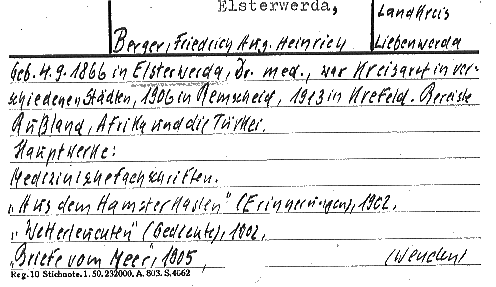 Elsterwerda,
Landkreis
Berger, Friedrich Aug. Heinrich
Liebenwerda
Geb. 4.9.1866 in Elsterwerda, Dr. med., war Kreisarzt in ver-
schiedenen Städten, 1906 in Remscheid, 1913 in Krefeld. Bereiste
Rußland, Afrika und die Türkei.
Hauptwerke:
Medizinische Fachschriften.
„Aus dem Hamsterkasten" (Erinnerungen), 1902.
„Wetterleuchten" (Gedichte), 1902.
„Briefe vom Meer", 1905,
(wenden)
Reg. 10 Stichnote. 1. 50. 232000. A. 803. S. 4662